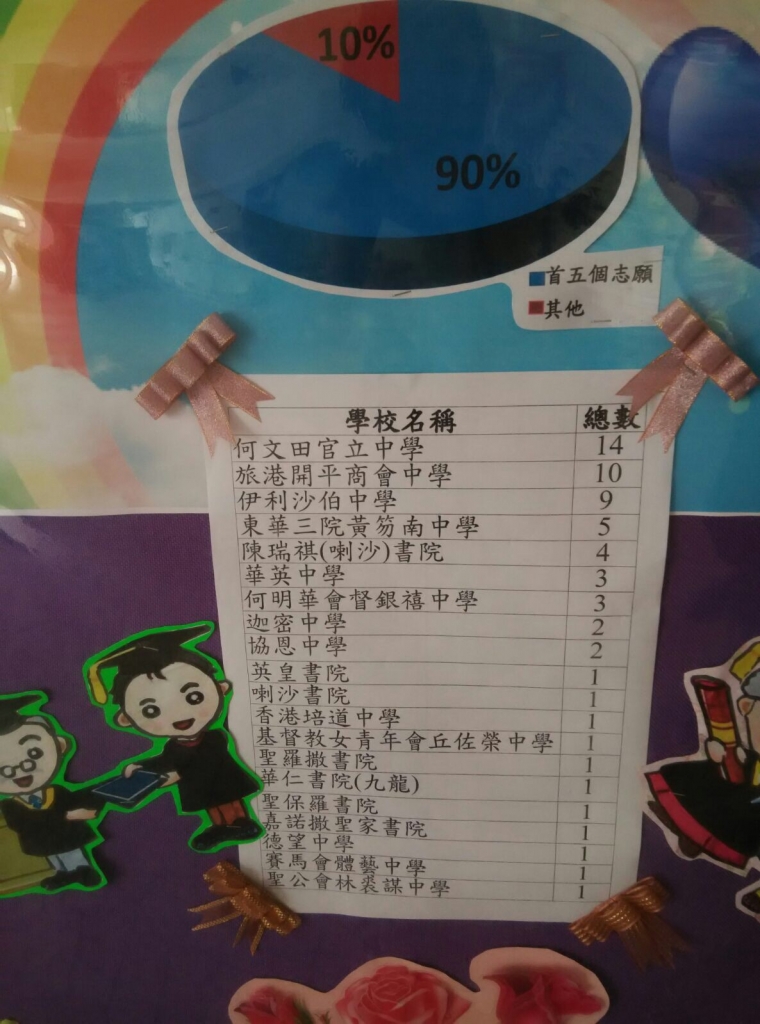 10%
90%
首五個志願
其他
學校名稱 總數
何文田官立中學 14
旅港開平商會中學 10
伊利沙伯中學 9
東華三院黃笏南中學 5
陳瑞祺(喇沙)書院 4
華英中學 3
何明華會督銀禧中學 3
迦密中學 2
協恩中學 2
英皇書院 1
喇沙書院 1
香港培道中學 1
基督教女青年會丘佐榮中學 1
聖羅撒書院 1
華仁書院(九龍) 1
聖保羅書院 1
嘉諾撒聖家書院 1
德望中學 1
賽馬會體藝中學 1
聖公會林裘謀中學 1